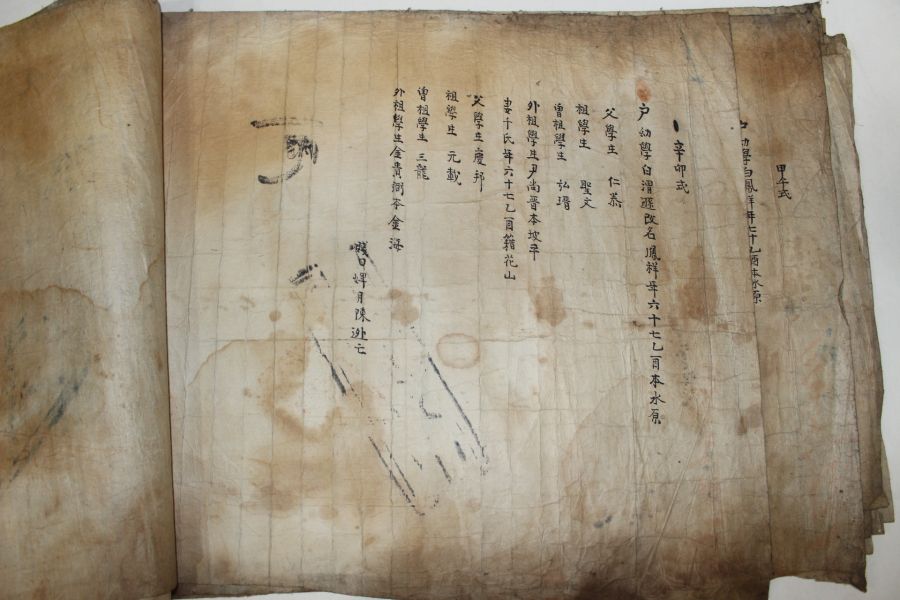 甲午式
戶幼學白鳳祥年七十乙酉本水原
辛卯式
戶幼學白渭 改名鳳祥年六十七乙酉本水原
父學生 仁恭
祖學生 聖文
曾祖學生 弘瑨
外祖學生尹尚晋本坡平
妻千氏年六十七乙酉籍花山
父學生慶邦
祖學生 元載
曾祖學生 三龍
外祖學生金貴 本金海
婢月陳逃亡